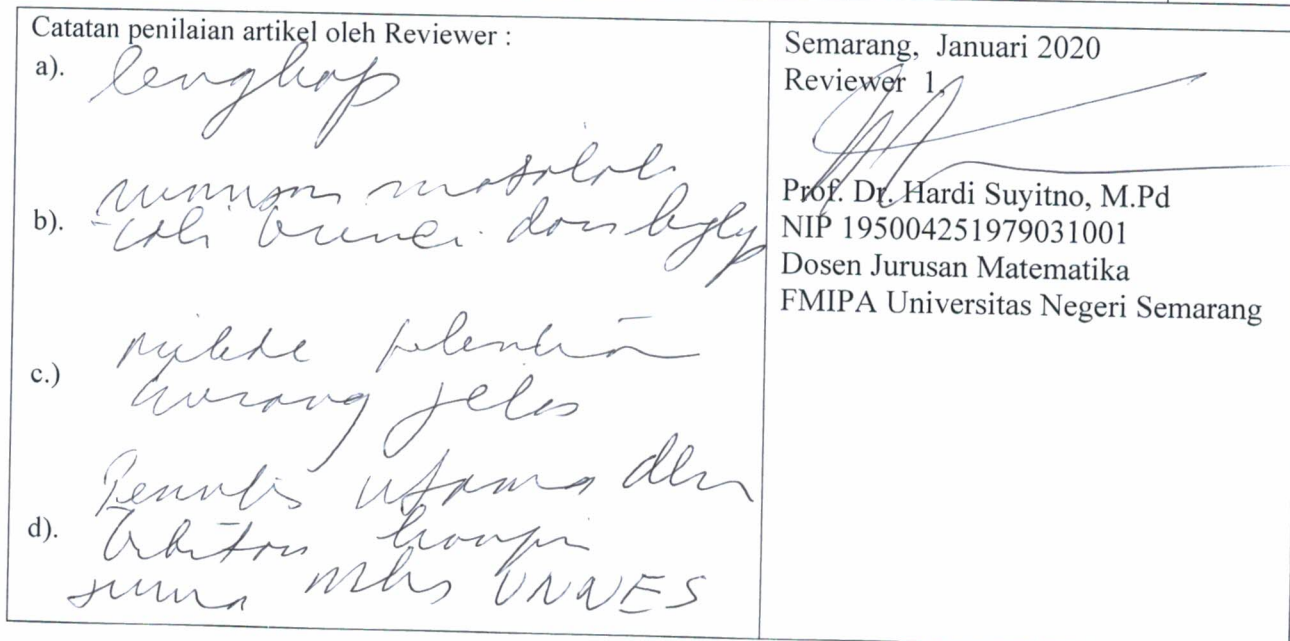 Catatan penilaian artikel oleh Reviewer :
a). lengkap
rumusan masalah
b). rinci dan
c.) kurang jelas
Penulis utama dan
d).
semua mhs UNNES
Semarang, Januari 2020
Reviewer 1,
Prof. Dr. Hardi Suyitno, M.Pd
NIP 195004251979031001
Dosen Jurusan Matematika
FMIPA Universitas Negeri Semarang